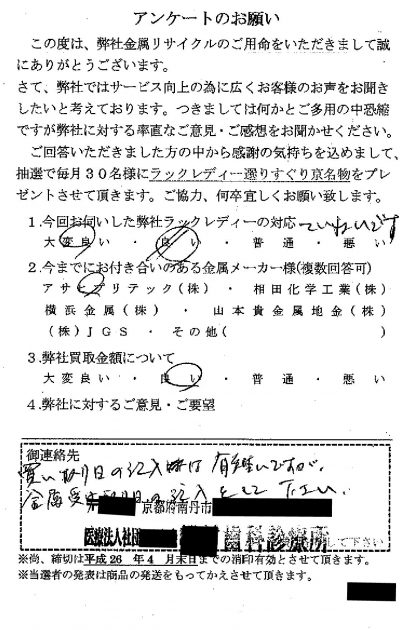 アンケートのお願い
この度は、弊社金属リサイクルのご用命をいただきまして誠
にありがとうございます。
さて、弊社ではサービス向上の為に広くお客様のお声をお聞き
したいと考えております。つきましては何かとご多用の中恐縮
ですが弊社に対する率直なご意見・ご感想をお聞かせください。
ご回答いただきました方の中から感謝の気持ちを込めまして、
抽選で毎月30名様にラックレディー選りすぐり京名物をプレ
ゼントさせて頂きます。ご協力、何卒宜しくお願い致します。
1.今回お伺いした弊社ラックレディーの対応 ていねいです
大変良い ・ 良い ・ 普通 ・ 悪い
2.今までにお付き合いのある金属メーカー様(複数回答可)
アサヒプリテック(株) ・ 相田化学工業(株)
横浜金属(株) ・ 山本貴金属地金(株)
(株)JGS ・ その他( )
3.弊社買取金額について
大変良い ・ 良い ・ 普通 ・ 悪い
4.弊社に対するご意見・ご要望
御連絡先
買い取り日の記入時は有難いですが、
金属の記入をして下さい。
京都府南丹市
医療法人社団 歯科診療所 して下さい
※尚、締切は平成26年4月末日までの消印有効とさせて頂きます。
※当選者の発表は商品の発送をもってかえさせて頂きます。